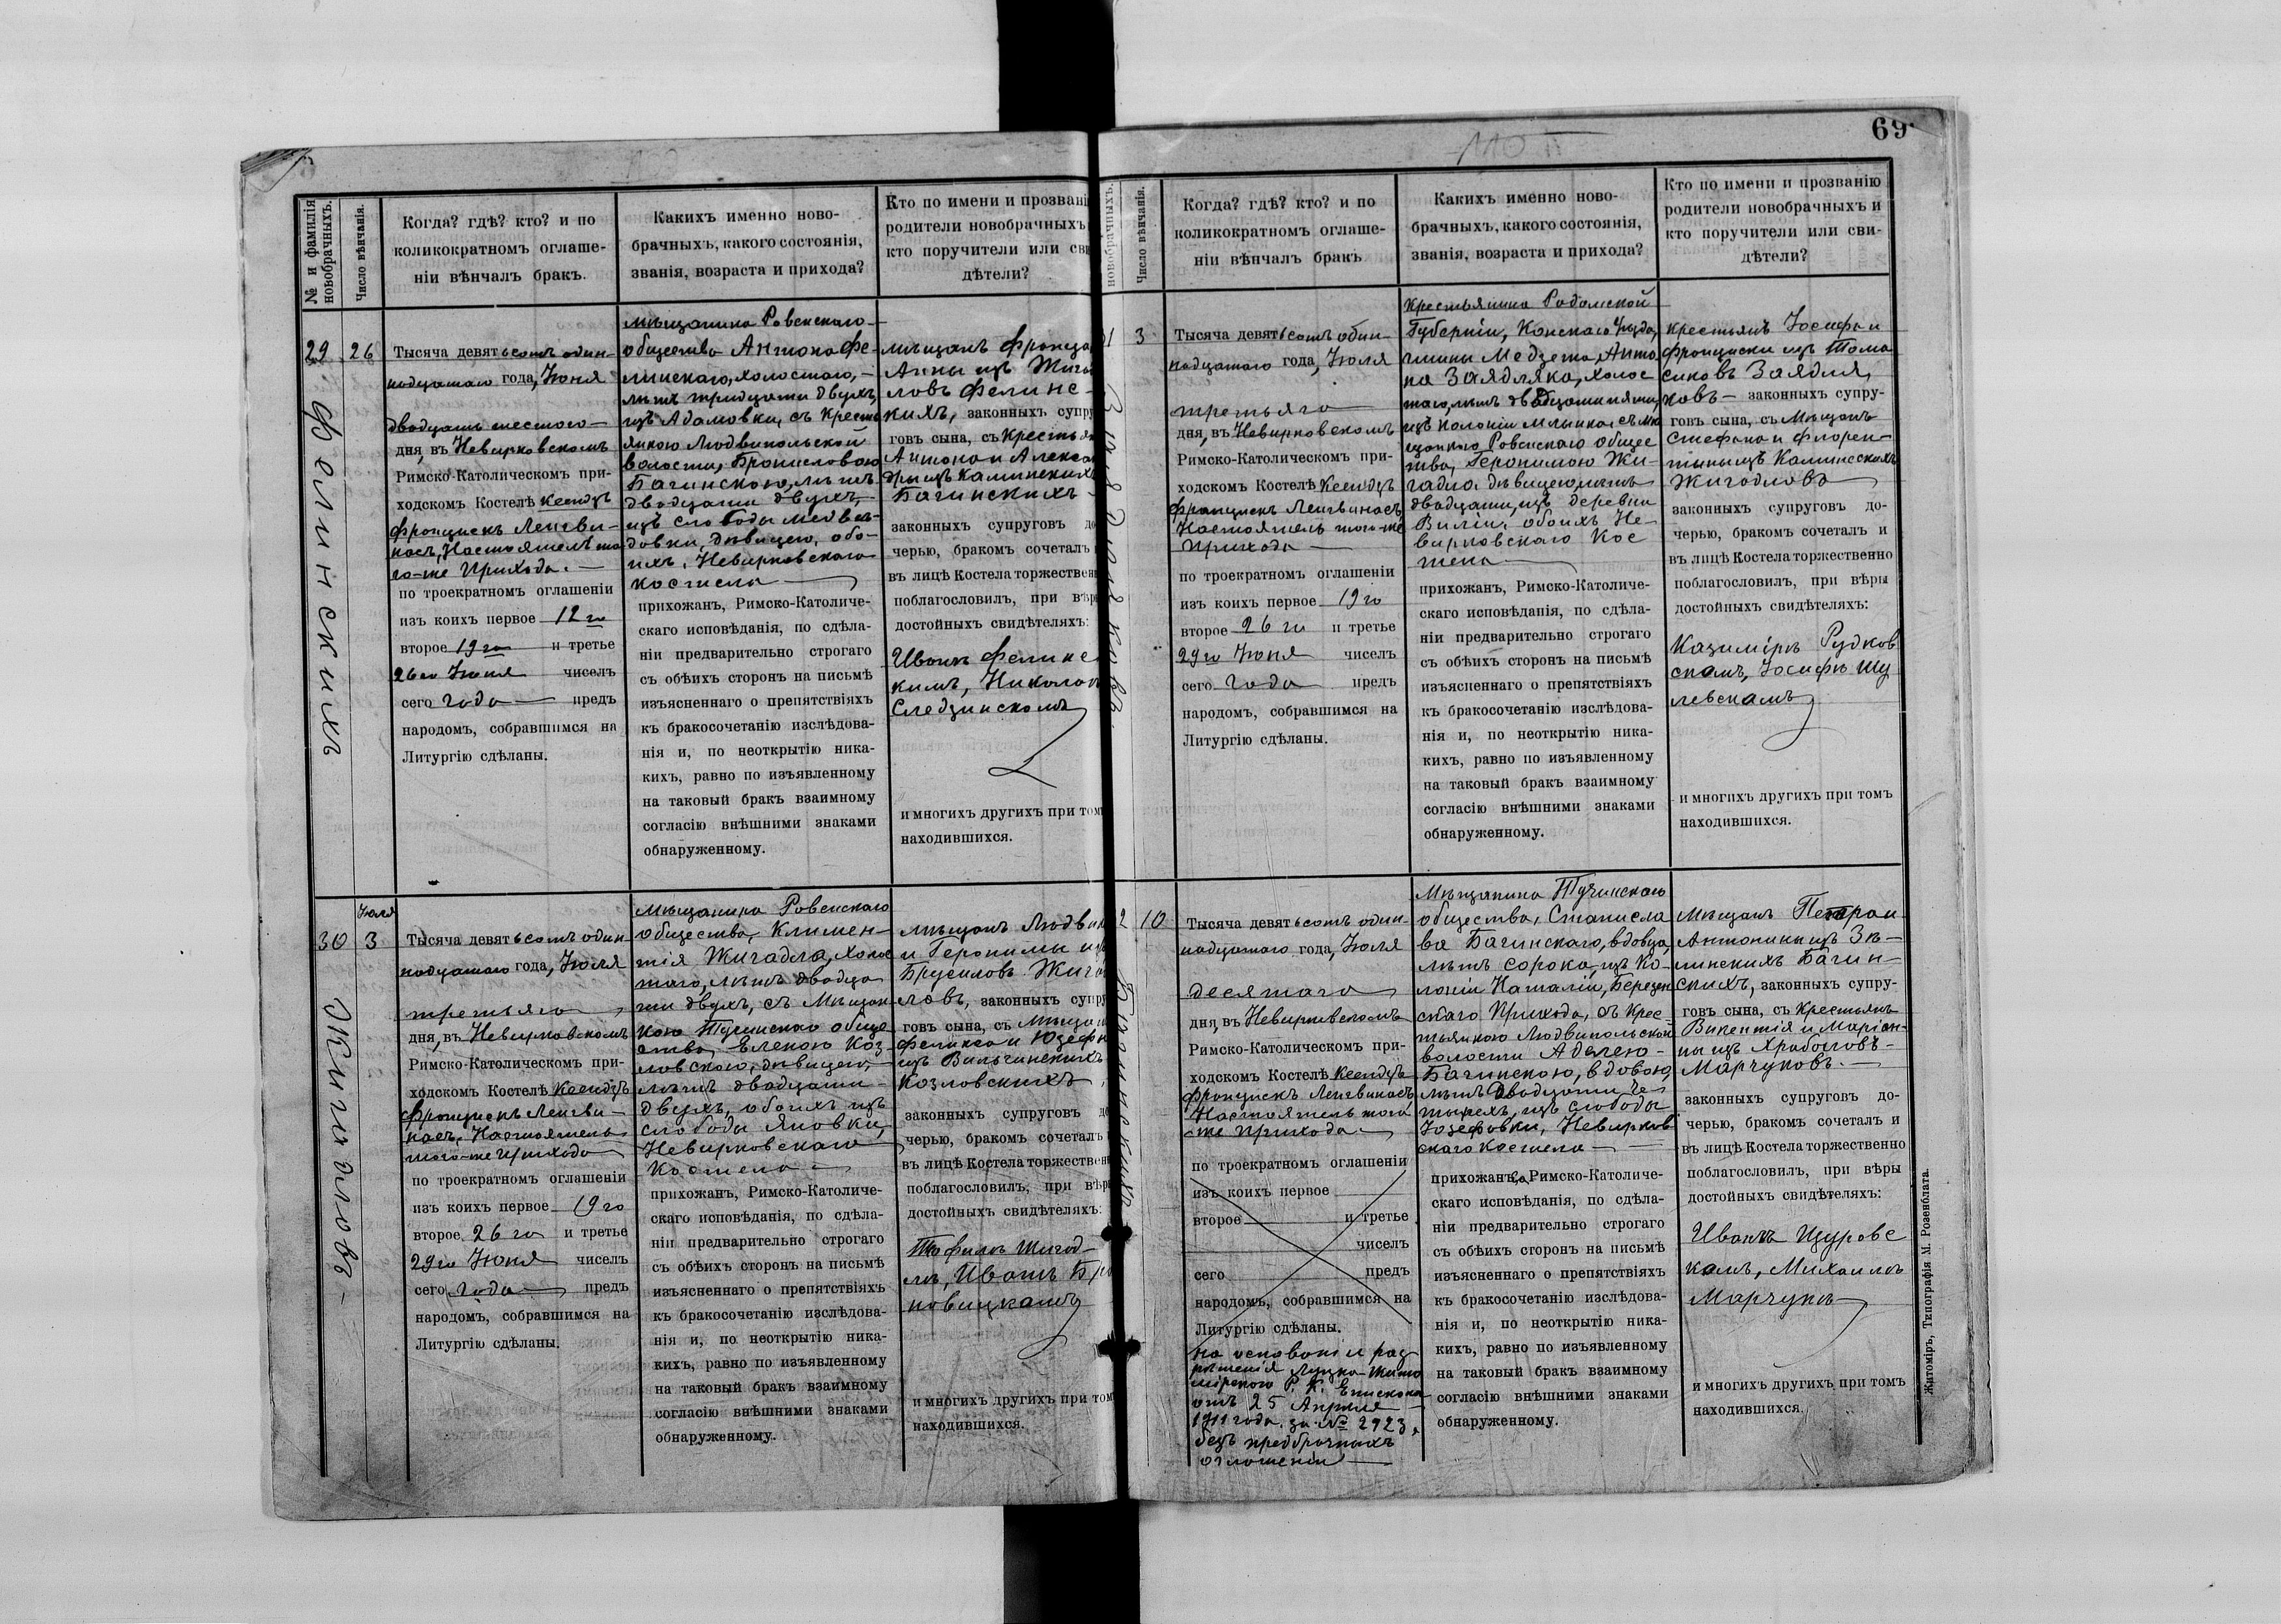 69
№ и фамилія
новобрачныхъ.
Число вѣнчанія.
Когда? гдѣ? кто? и по
коликократномъ оглаше-
ніи вѣнчалъ бракъ.
Какихъ именно ново-
брачныхъ, какого состоянія,
званія, возраста и прихода?
Кто по имени и прозвані
родители новобрачныхъ
кто поручители или сви
дѣтели?
29
26
Фелинскихъ
Тысяча девятьсотъ один-
надцатаго года, Іюня
двадцать шестого
дня, въ Невирковскомъ
Римско-Католическомъ при-
ходскомъ Костелѣ Ксендзъ
Францискъ Ленгви-
насъ, Настоятель то
го-же Прихода.
по троекратномъ оглашеніи
изъ коихъ первое 12го
второе 19го и третье
26го Іюня чиселъ
сего года предъ
народомъ, собравшимся на
Литургію сдѣланы.
мѣщанина Ровенскаго
общества Антона Фе-
линскаго, холостого,
лѣтъ тридцати двухъ,
изъ Адамовки, съ Кресть
янкою Людвипольской
волости, Брониславою
Багинскою, лѣтъ
двадцати двухъ,
изъ слободы Медвѣ-
довки, дѣвицею, обо-
ихъ, Невирковскаго
костела
прихожанъ, Римско-Католиче-
скаго исповѣданія, по сдѣла-
ніи предварительно строгаго
съ обѣихъ сторонъ на письмѣ
изъясненнаго о препятствіяхъ
къ бракосочетанію изслѣдова-
нія и, по неоткрытію ника-
кихъ, равно по изъявленному
на таковый бракъ взаимному
согласію внѣшними знаками
обнаруженному.
мѣщанъ Франца
Анны изъ Жига
ловъ Фелинс-
кихъ, законныхъ супру
говъ сына, съ Крестьян
Антона и Алексан
дры изъ Калинскихъ
Багинскихъ
законныхъ супруговъ до
черью, бракомъ сочеталъ
въ лицѣ Костела торжествен
поблагословил, при вѣр
достойныхъ свидѣтеляхъ:
Иванъ Фелинс
кимъ, Николай
Следзинскомъ
и многихъ другихъ при том
находившихся.
30
Іюля
3
Жигадловъ
Тысяча девятьсотъ один-
надцатаго года, Іюля
третьяго
дня, въ Невирковскомъ
Римско-Католическомъ при-
ходскомъ Костелѣ Ксендзъ
Францискъ Ленгви-
насъ, Настоятель
того-же Прихода
по троекратномъ оглашеніи
изъ коихъ первое 19го
второе 26го и третье
29го Іюня чиселъ
сего года предъ
народомъ, собравшимся на
Литургію сдѣланы.
Мѣщанина Ровенскаго
общества, Климен-
тія Жигадла, холос
таго, лѣтъ двадца
ти двухъ, съ Мѣщан
кою Тучинскаго обще
ства, Еленою Коз-
ловскою, дѣвицею,
лѣтъ двадцати
двухъ, обоихъ изъ
слободы Яновки,
Невирковскаго
Костела
прихожанъ, Римско-Католиче-
скаго исповѣданія, по сдѣла-
ніи предварительно строгаго
съ обѣихъ сторонъ на письмѣ
изъясненнаго о препятствіяхъ
къ бракосочетанію изслѣдова-
нія и, по неоткрытію ника-
кихъ, равно по изъявленному
на таковый бракъ взаимному
согласію внѣшними знаками
обнаруженному.
мѣщанъ Людви
и Геронимы изъ
Брусиловъ Жига
ловъ, законныхъ супру
говъ сына, съ мѣщан
Феликса и Юзефы
изъ Вильчинскихъ
Козловскихъ
законныхъ супруговъ до
черью, бракомъ сочеталъ
въ лицѣ Костела торжествен
поблагословил, при вѣр
достойныхъ свидѣтеляхъ:
Жигод-
лъ, Иванъ
новицкамъ
и многихъ другихъ при том
находившихся.
новобрачныхъ.
Число вѣнчанія.
Когда? гдѣ? кто? и по
коликократномъ оглаше-
ніи вѣнчалъ бракъ
Какихъ именно ново-
брачныхъ, какого состоянія,
званія, возраста и прихода?
Кто по имени и прозванію
родители новобрачныхъ и
кто поручители или сви-
дѣтели?
1
3
Заядляковъ
Тысяча девятьсотъ один
надцатаго года, Іюля
третьяго
дня, въ Невирковскомъ
Римско-Католическомъ при-
ходскомъ Костелѣ Ксендзъ
Францискъ Ленгвинасъ
Настоятель того-же
Прихода
по троекратномъ оглашеніи
изъ коихъ первое 19го
второе 26го и третье
29го Іюня чиселъ
сего года предъ
народомъ, собравшимся на
Литургію сдѣланы.
Крестьянина Радомской
Губерніи, Конскаго уѣзда,
гмины Медзежа, Анто
на Заядляка, холос
таго, лѣтъ двадцати пяти,
изъ Колоніи Млынка, съ мѣ
щанкою Ровенскаго общес
тва, Геронимою Жи-
гадла дѣвицею, лѣтъ
двадцати, изъ деревни
Виліи, обоихъ Не-
вирковскаго Кос
тела
прихожанъ, Римско-Католиче-
скаго исповѣданія, по сдѣла-
ніи предварительно строгаго
съ обѣихъ сторонъ на письмѣ
изъясненнаго о препятствіяхъ
къ бракосочетанію изслѣдова-
нія и, по неоткрытію ника-
кихъ, равно по изъявленному
на таковый бракъ взаимному
согласію внѣшними знаками
обнаруженному.
крестьянъ Іосифа и
Франциски изъ Тома
сиковъ Заядля
ковъ законныхъ супру-
говъ сына, съ Мѣщанъ
Стефана и Флорен-
тины изъ Калинескихъ
Жигодловъ
законныхъ супруговъ до-
черью, бракомъ сочеталъ и
въ лицѣ Костела торжественно
поблагословил, при вѣры
достойныхъ свидѣтеляхъ:
Казиміръ Рудков
скамъ, Іосифъ Шу
левскамъ
и многихъ другихъ при томъ
находившихся.
2
10
Багинскихъ
Тысяча девятьсотъ один-
надцатаго года, Іюля
десятаго
дня, въ Невирковскомъ
Римско-Католическомъ при-
ходскомъ Костелѣ Ксендзъ
Францискъ Ленгвинасъ,
Настоятель того
же прихода
по троекратномъ оглашеніи
изъ коихъ первое
второе и третье
чиселъ
сего предъ
народомъ, собравшимся на
Литургію сдѣланы.
на основаніи раз
рѣшенія Луцко-Жито
мірского Р. К. Епископа
отъ 25 Апрѣля
1911 года за № 2923,
безъ предбрачныхъ
оглашеніи
Мѣщанина Тучинскаго
общества, Станисла
ва Багинскаго, вдовца,
лѣтъ сорока, изъ Ко-
лоніи Наталіи, Березн
скаго Прихода, съ Крес-
тьянкою Людвипольской
волости Аделею
Багинскою, вдовою,
лѣтъ двадцати че
тырехъ, изъ слободы
Іозефовки, Невирков
скаго Костела
прихожанъ, Римско-Католиче-
скаго исповѣданія, по сдѣла-
ніи предварительно строгаго
съ обѣихъ сторонъ на письмѣ
изъясненнаго о препятствіяхъ
къ бракосочетанію изслѣдова-
нія и, по неоткрытію ника-
кихъ, равно по изъявленному
на таковый бракъ взаимному
согласію внѣшними знаками
обнаруженному.
Мѣщанъ Петра и
Антонины изъ Зѣ-
линскихъ Багин-
скихъ, законныхъ супру-
говъ сына, съ Крестьянъ
Викентія и Маріан-
ны изъ Храболовъ-
Марчуковъ.
законныхъ супруговъ до-
черью, бракомъ сочеталъ и
въ лицѣ Костела торжественно
поблагословил, при вѣры
достойныхъ свидѣтеляхъ:
Иванъ Щуровс
камъ, Михаилъ
Марчукъ
и многихъ другихъ при томъ
находившихся.
Житоміръ, Типографія М. Розенблата.